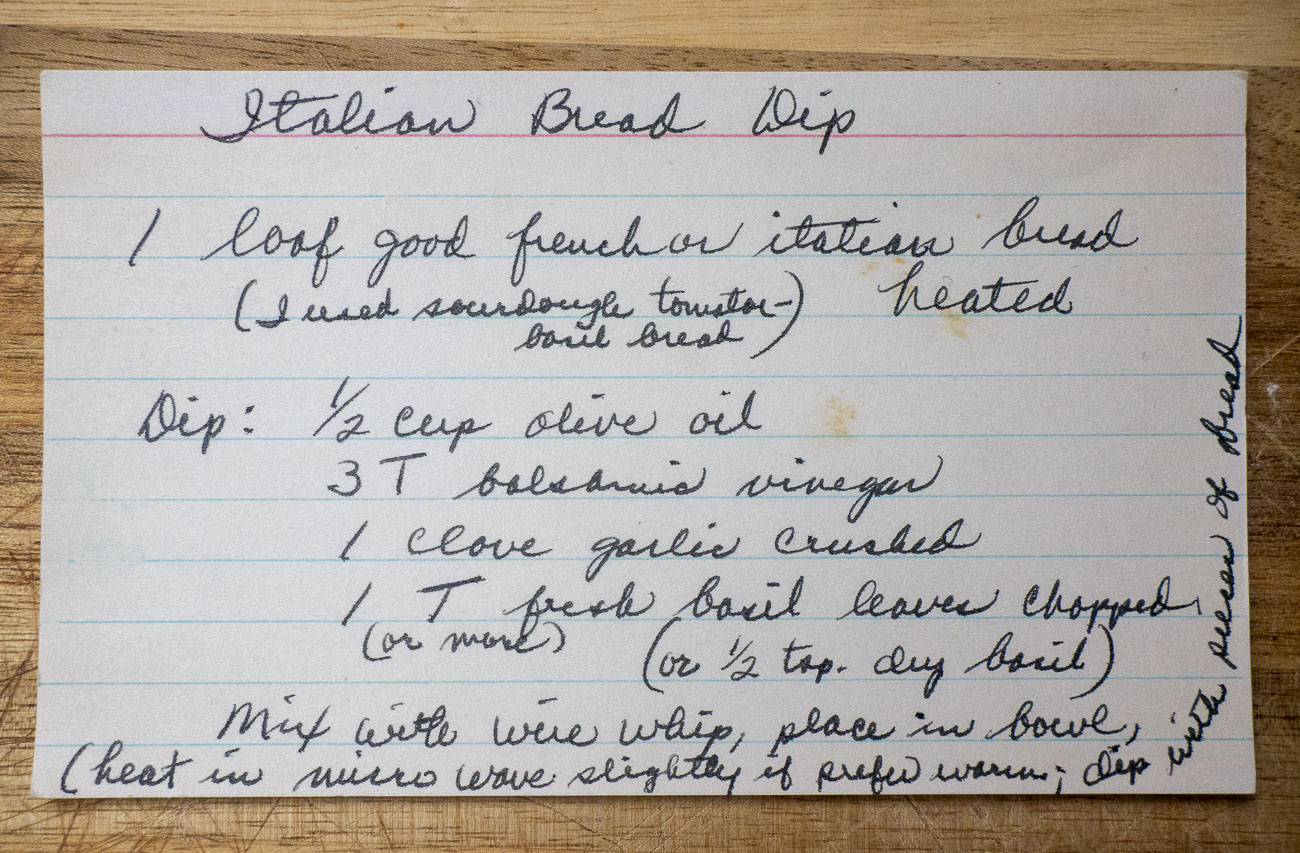 Italian Bread Dip
1 loaf good french or italian bread
heated
(I used sourdough tomato-
basil bread)
Dip: 1/2 cup olive oil
3 T balsamic vinegar
1 clove garlic crushed
1 T fresh basil leaves chopped
(or more) (or 1/2 tsp. dry basil)
Mix with wire whip, place in bowl,
(heat in micro wave slightly if prefer warm; dip
with pieces of bread